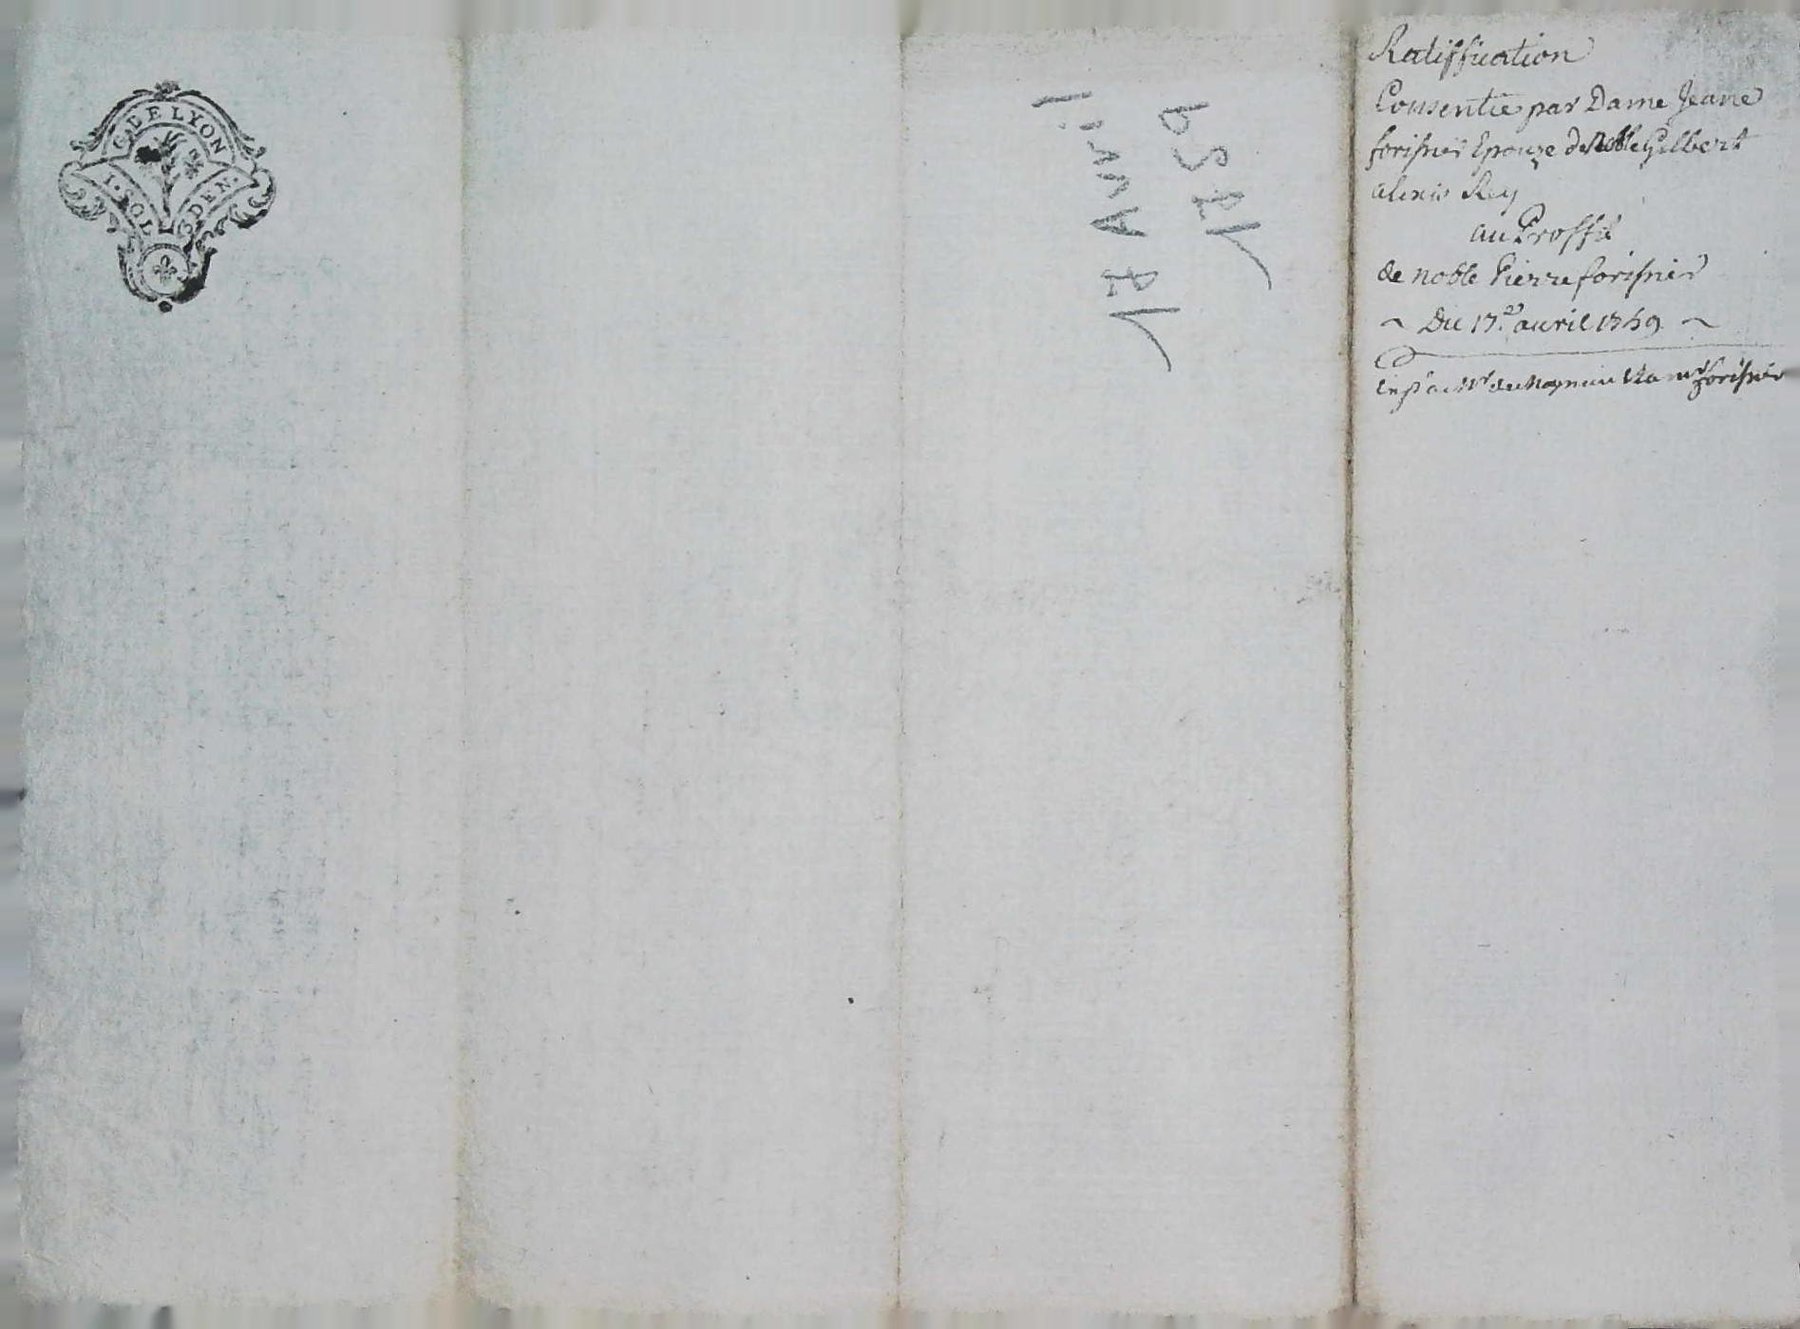 G. DE LYON
I. SOL 3 DEN.
17 Avril
1759
Ratiffication
Consentie par Dame Jeane
forissier Epouze de Noble Gilbert
alexis Rey
au Proffit
de noble Pierre forissier
~ Du 17.e avril 1759 ~
forissier